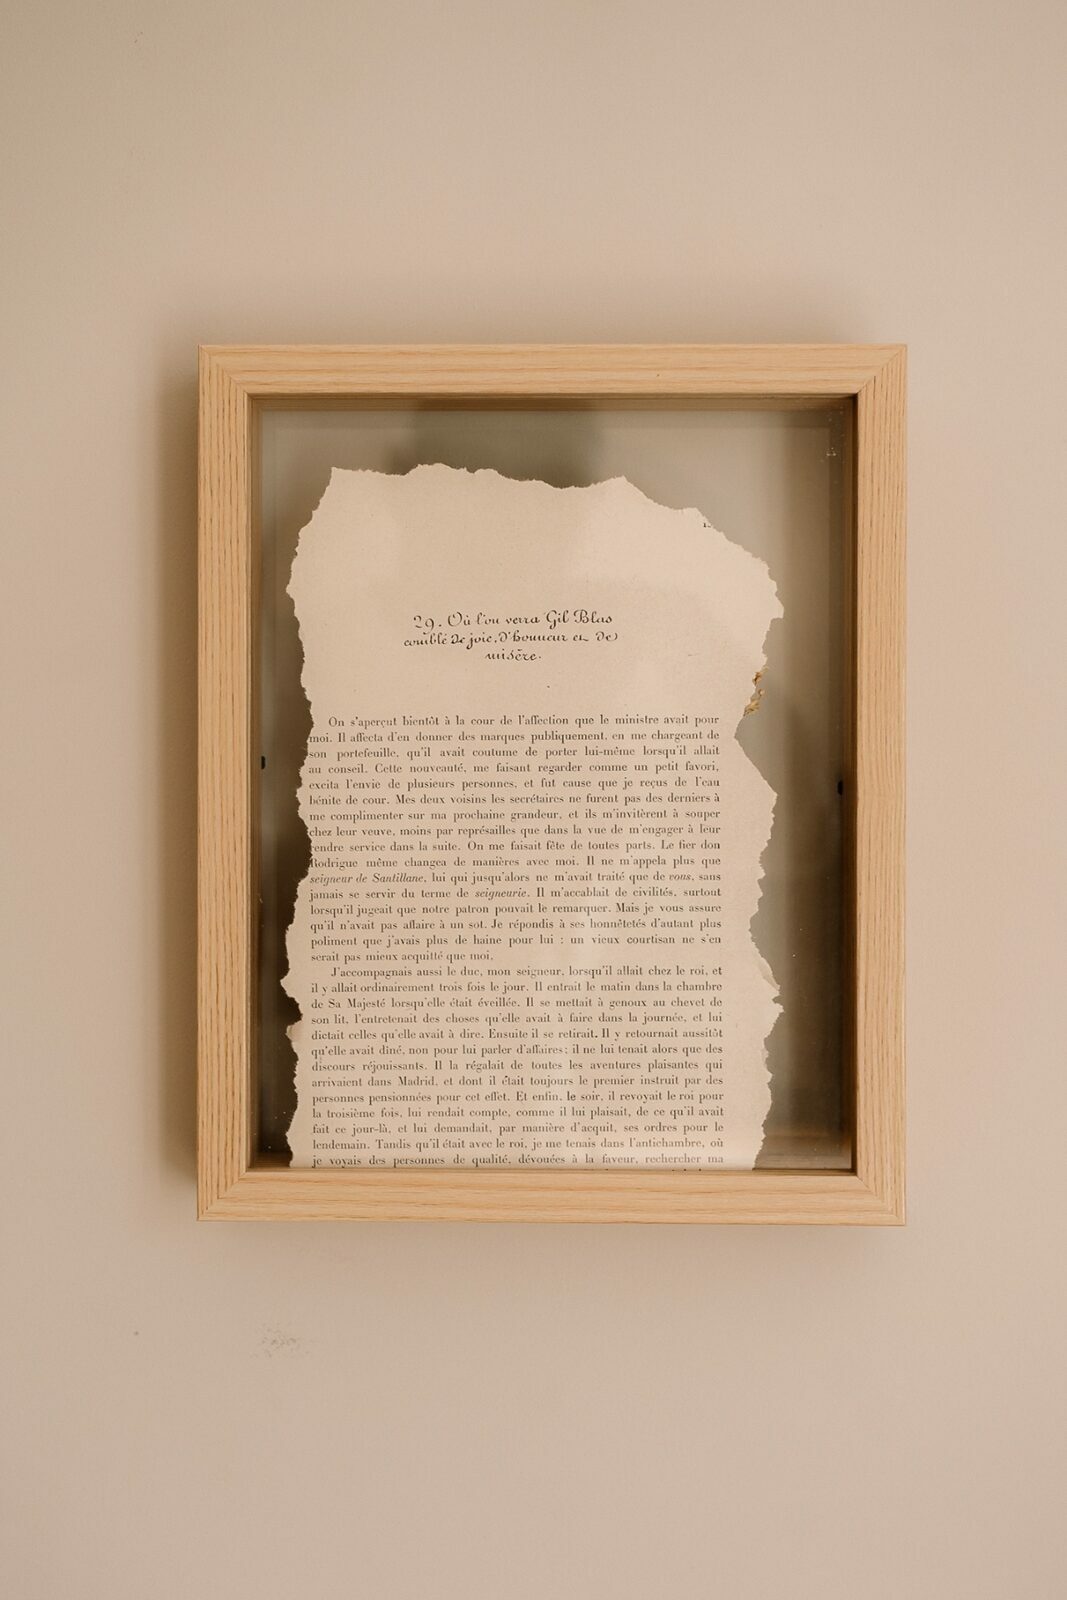 29. Où l'on verra Gil Blas
comblé de joie, d'honneur et de
misère.
On s'aperçut bientôt à la cour de l'affection que le ministre avait pour
moi. Il affecta d'en donner des marques publiquement, en me chargeant de
son portefeuille, qu'il avait coutume de porter lui-même lorsqu'il allait
au conseil. Cette nouveauté, me faisant regarder comme un petit favori,
excita l'envie de plusieurs personnes, et fut cause que je reçus de l'eau
bénite de cour. Mes deux voisins les secrétaires ne furent pas des derniers à
me complimenter sur ma prochaine grandeur, et ils m'invitèrent à souper
chez leur veuve, moins par représailles que dans la vue de m'engager à leur
rendre service dans la suite. On me faisait fête de toutes parts. Le fier don
Rodrigue même changea de manières avec moi. Il ne m'appela plus que
seigneur de Santillane, lui qui jusqu'alors ne m'avait traité que de vous, sans
jamais se servir du terme de seigneurie. Il m'accablait de civilités, surtout
lorsqu'il jugeait que notre patron pouvait le remarquer. Mais je vous assure
qu'il n'avait pas affaire à un sot. Je répondis à ses honnêtetés d'autant plus
poliment que j'avais plus de haine pour lui : un vieux courtisan ne s'en
serait pas mieux acquitté que moi.
J'accompagnais aussi le duc, mon seigneur, lorsqu'il allait chez le roi, et
il y allait ordinairement trois fois le jour. Il entrait le matin dans la chambre
de Sa Majesté lorsqu'elle était éveillée. Il se mettait à genoux au chevet de
son lit, l'entretenait des choses qu'elle avait à faire dans la journée, et lui
dictait celles qu'elle avait à dire. Ensuite il se retirait. Il y retournait aussitôt
qu'elle avait dîné, non pour lui parler d'affaires ; il ne lui tenait alors que des
discours réjouissants. Il la régalait de toutes les aventures plaisantes qui
arrivaient dans Madrid, et dont il était toujours le premier instruit par des
personnes pensionnées pour cet effet. Et enfin, le soir, il revoyait le roi pour
la troisième fois, lui rendait compte, comme il lui plaisait, de ce qu'il avait
fait ce jour-là, et lui demandait, par manière d'acquit, ses ordres pour le
lendemain. Tandis qu'il était avec le roi, je me tenais dans l'antichambre, où
je voyais des personnes de qualité, dévouées à la faveur, rechercher ma